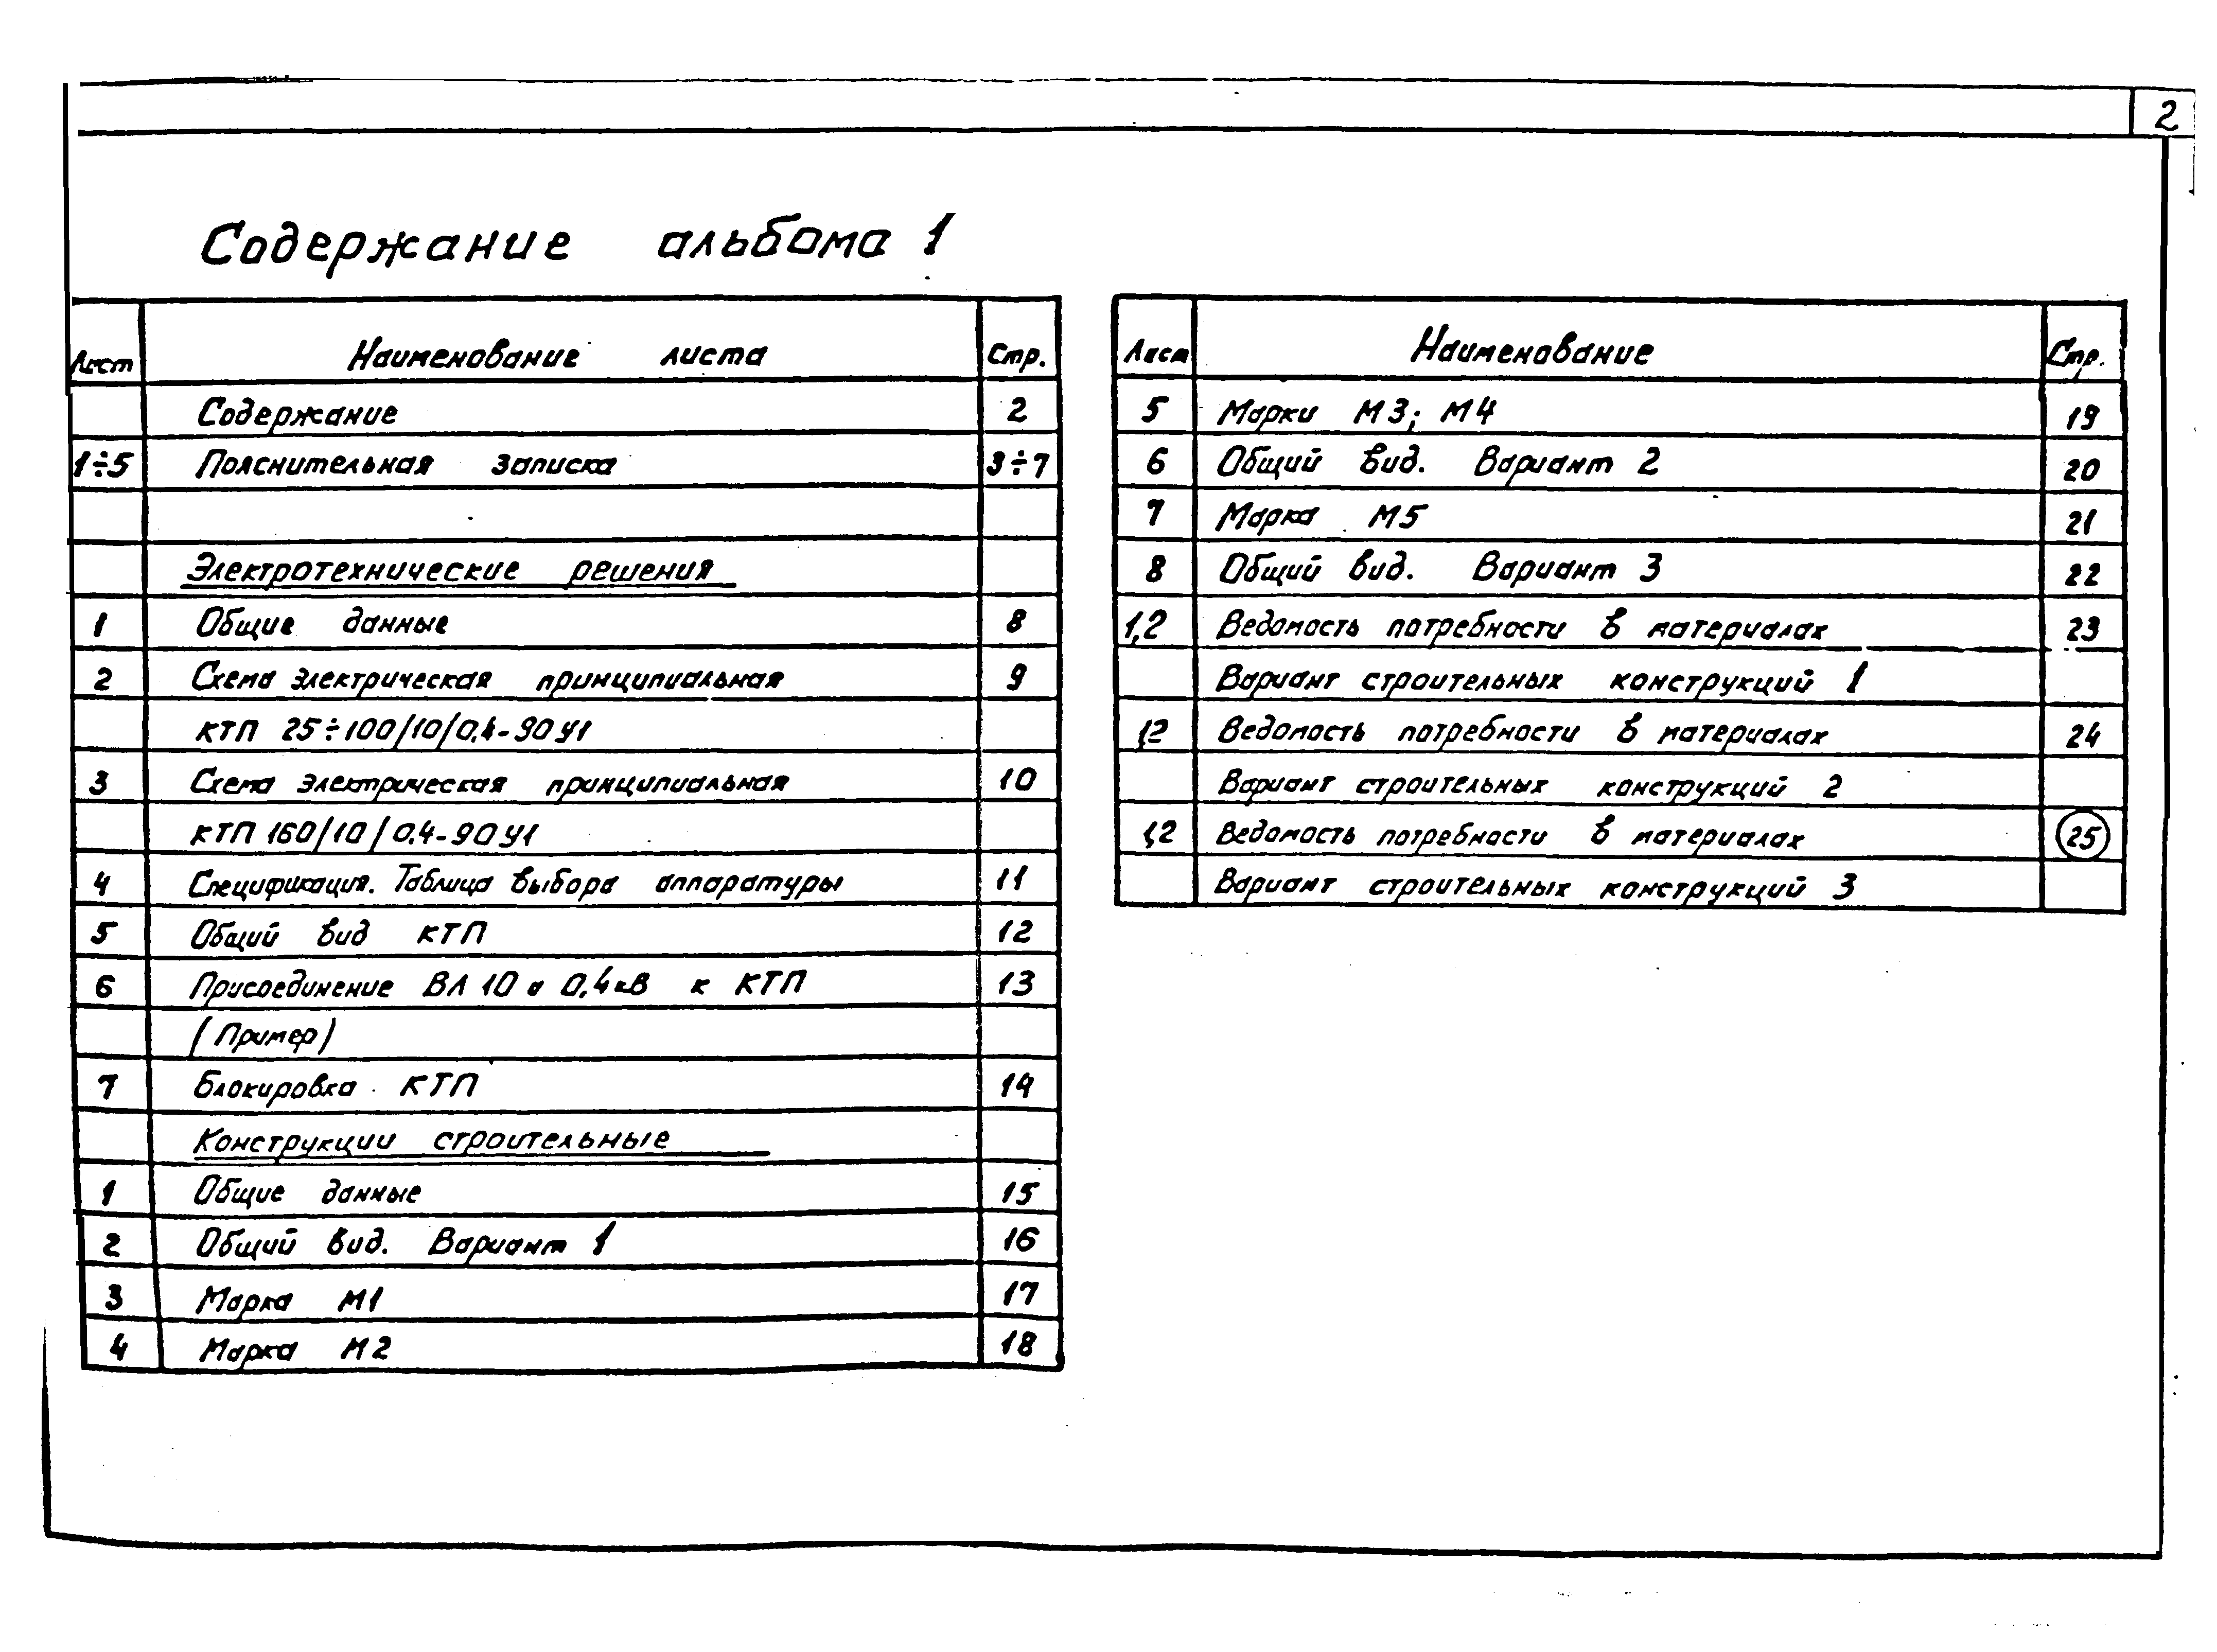 2
Содержание альбома 1
Лист Наименование листа Стр.
Содержание 2
1÷5 Пояснительная записка 3÷7
Электротехнические решения
1 Общие данные 8
2 Схема электрическая принципиальная 9
КТП 25÷100/10/0,4-90У1
3 Схема электрическая принципиальная 10
КТП 160/10/0,4-90У1
4 Спецификация. Таблица выбора аппаратуры 11
5 Общий вид КТП 12
6 Присоединение ВЛ 10 и 0,4кВ к КТП 13
(Пример)
7 Блокировка КТП 14
Конструкции строительные
1 Общие данные 15
2 Общий вид. Вариант 1 16
3 Марка М1 17
4 Марка М2 18
Лист Наименование Стр.
5 Марки М3; М4 19
6 Общий вид. Вариант 2 20
7 Марка М5 21
8 Общий вид. Вариант 3 22
1,2 Ведомость потребности в материалах 23
Вариант строительных конструкций 1
1,2 Ведомость потребности в материалах 24
Вариант строительных конструкций 2
1,2 Ведомость потребности в материалах 25
Вариант строительных конструкций 3